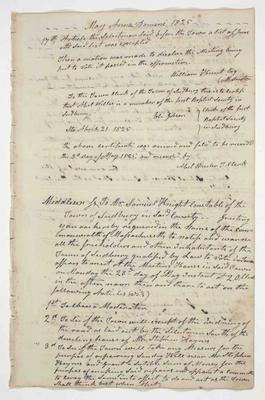 May Anno Domini 1825
17th Article the Selectmen laid before the Town a list of Jurors
the said list was accepted
Then a motion was made to dissolve the Meeting being
put to vote it passed in the affirmative
William Hunt
To the Town Clerk of the Town of Sudbury this is to certify
that Abel Willis is a member of the first Baptist Society in
Sudbury
Clerk of the first
Baptist Society
in Sudbury
April 21. 1825
the above certificate was received and filed to be recorded
the 3d day of May 1825 and recorded by
Abel Wheeler T. Clerk
Middlesex Ss. To Mr. Samuel Knight Constable of the
Town of Sudbury in said County Greeting
you are hereby required in the Name of the Com-
monwealth of Massachusetts to notify and warn
all the freeholders and other Inhabitants of the
Town of Sudbury qualified by Law to vote in town
affairs to meet at the Meeting House in said Town
on Monday the 23d day of May Instant at
in the afternoon then and there to act on the
following Articles (viz)
1st To choose a Moderator
2nd To see if the Town will accept of the
the road as laid out by the Selectmen South of the
house of Mr Stephen Haynes
3rd To see if the Town will take any Measures for the
purpose of repairing Sandy Hill near Mr Stephen
Haynes and grant a suitable Sum of Money for the
purpose of making said repairs and appoint a committee
to carry the same into effect or to do and act as the Town
shall think best when Met